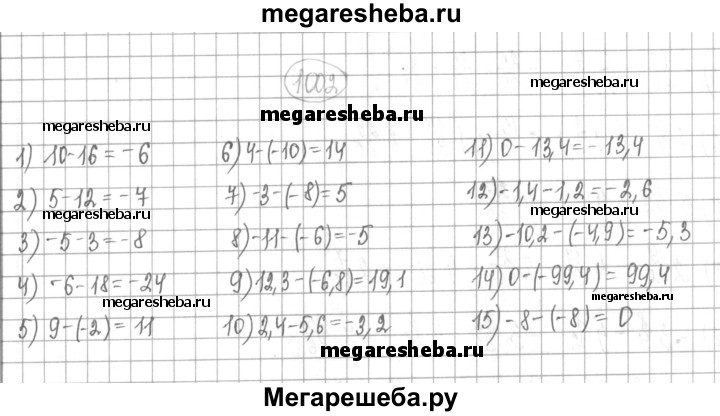 megaresheba.ru
1002
megaresheba.ru
megaresheba.ru
megaresheba.ru
1) 10-16=-6
2) 5-12=-7
megaresheba.ru
3) -5-3=-8
4) -6-18=-24
megaresheba.ru
5) 9-(-2)=11
6) 4-(-10)=14
7) -3-(-8)=5
8) -11-(-6)=-5
9) 12,3-(-6,8)=19,1
10) 2,4-5,6=-3,2
megaresheba.ru
11) 0-13,4=-13,4
12) -1,4-1,2=-2,6
megaresheba.ru
13) -10,2-(-4,9)=-5,3
14) 0-(-99,4)=99,4
megaresheba.ru
15) -8-(-8)=0
Мегарешеба.ру